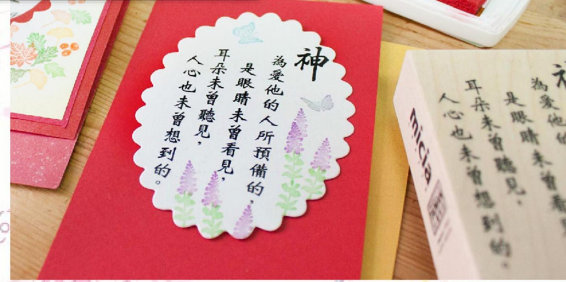 神
為愛他的人所預備的,
是眼睛未曾看見,
耳朵未曾聽見,
人心也未曾想到的。
神
為愛他的人
是眼睛未曾看見,
耳朵未曾聽見,
人心也未曾想到的。
micia